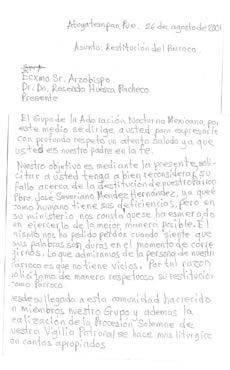 Atoyatempan, Pue. 26 de agosto de 2001
Asunto: Restitución del Párroco.
Excmo Sr. Arzobispo
Dr. Dn. Rosendo Huesca Pacheco
Presente
El Gupo de la Adoración Nocturna Mexicana, por
este medio se dirige a usted para expresarle
con profundo respeto un atento saludo ya que
usted es nuestro padre en la fe.
Nuestro objetivo es mediante la presente, soli-
citar a usted tenga a bien reconsiderar su
fallo acerca de la destitución de nuestro Párroco
Pbro. José Severiano Méndez Hernández, que
como humano tiene sus deficiencias, pero en
su ministerio nos consta que se ha esmerado
en ejercerlo de la mejor manera posible. El
mismo nos ha pedido perdón cuando siente que
sus palabras son duras en el momento de corre
girnos. Lo que admiramos de la persona de nuestro
Párroco es que no tiene vicios. Por tal razón
solicitamos de manera respetuosa su restitución
como Párroco.
Desde su llegado a esta comunidad ha crecido
en miembros nuestro Grupo y además la
realización de la Procesión Solemne de
nuestra Vigilia Patronal se hace más litúrgico
con cantos apropiados